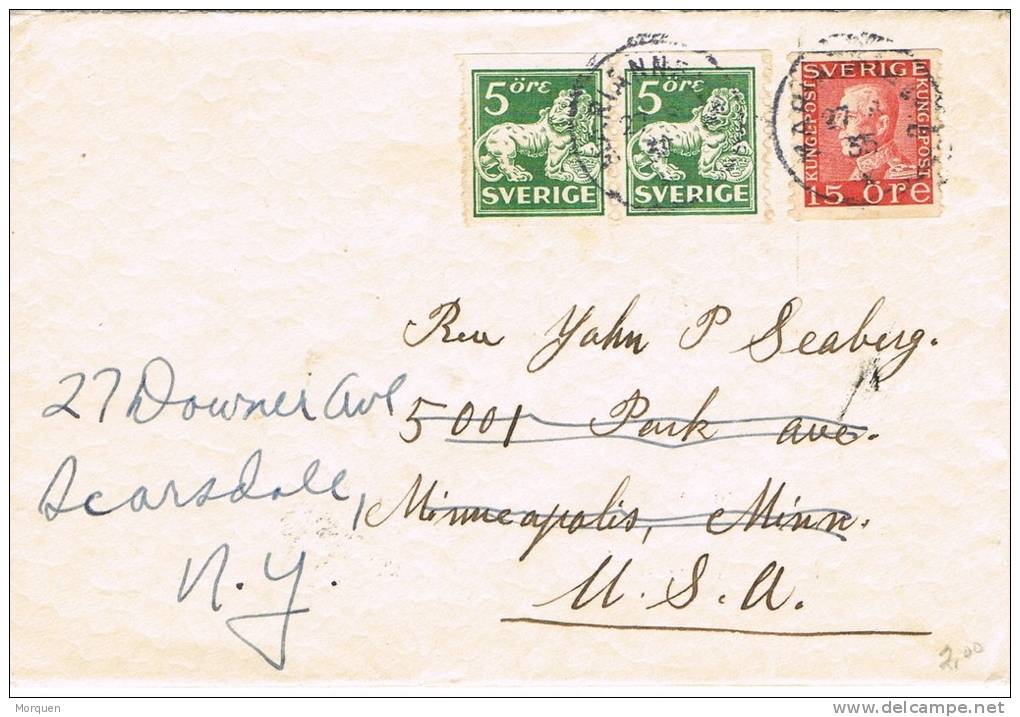 5 öre
SVERIGE
5 öre
SVERIGE
SVERIGE
KUNGL·POST
KUNGL·POST
15 ÖRE
27
35
Rev Yohn P Seaberg.
5001 Park ave.
Minneapolis, Minn.
U. S. A.
27 Downer Ave
Scarsdale,
N. Y.
2,00
Morquen
www.delcampe.net